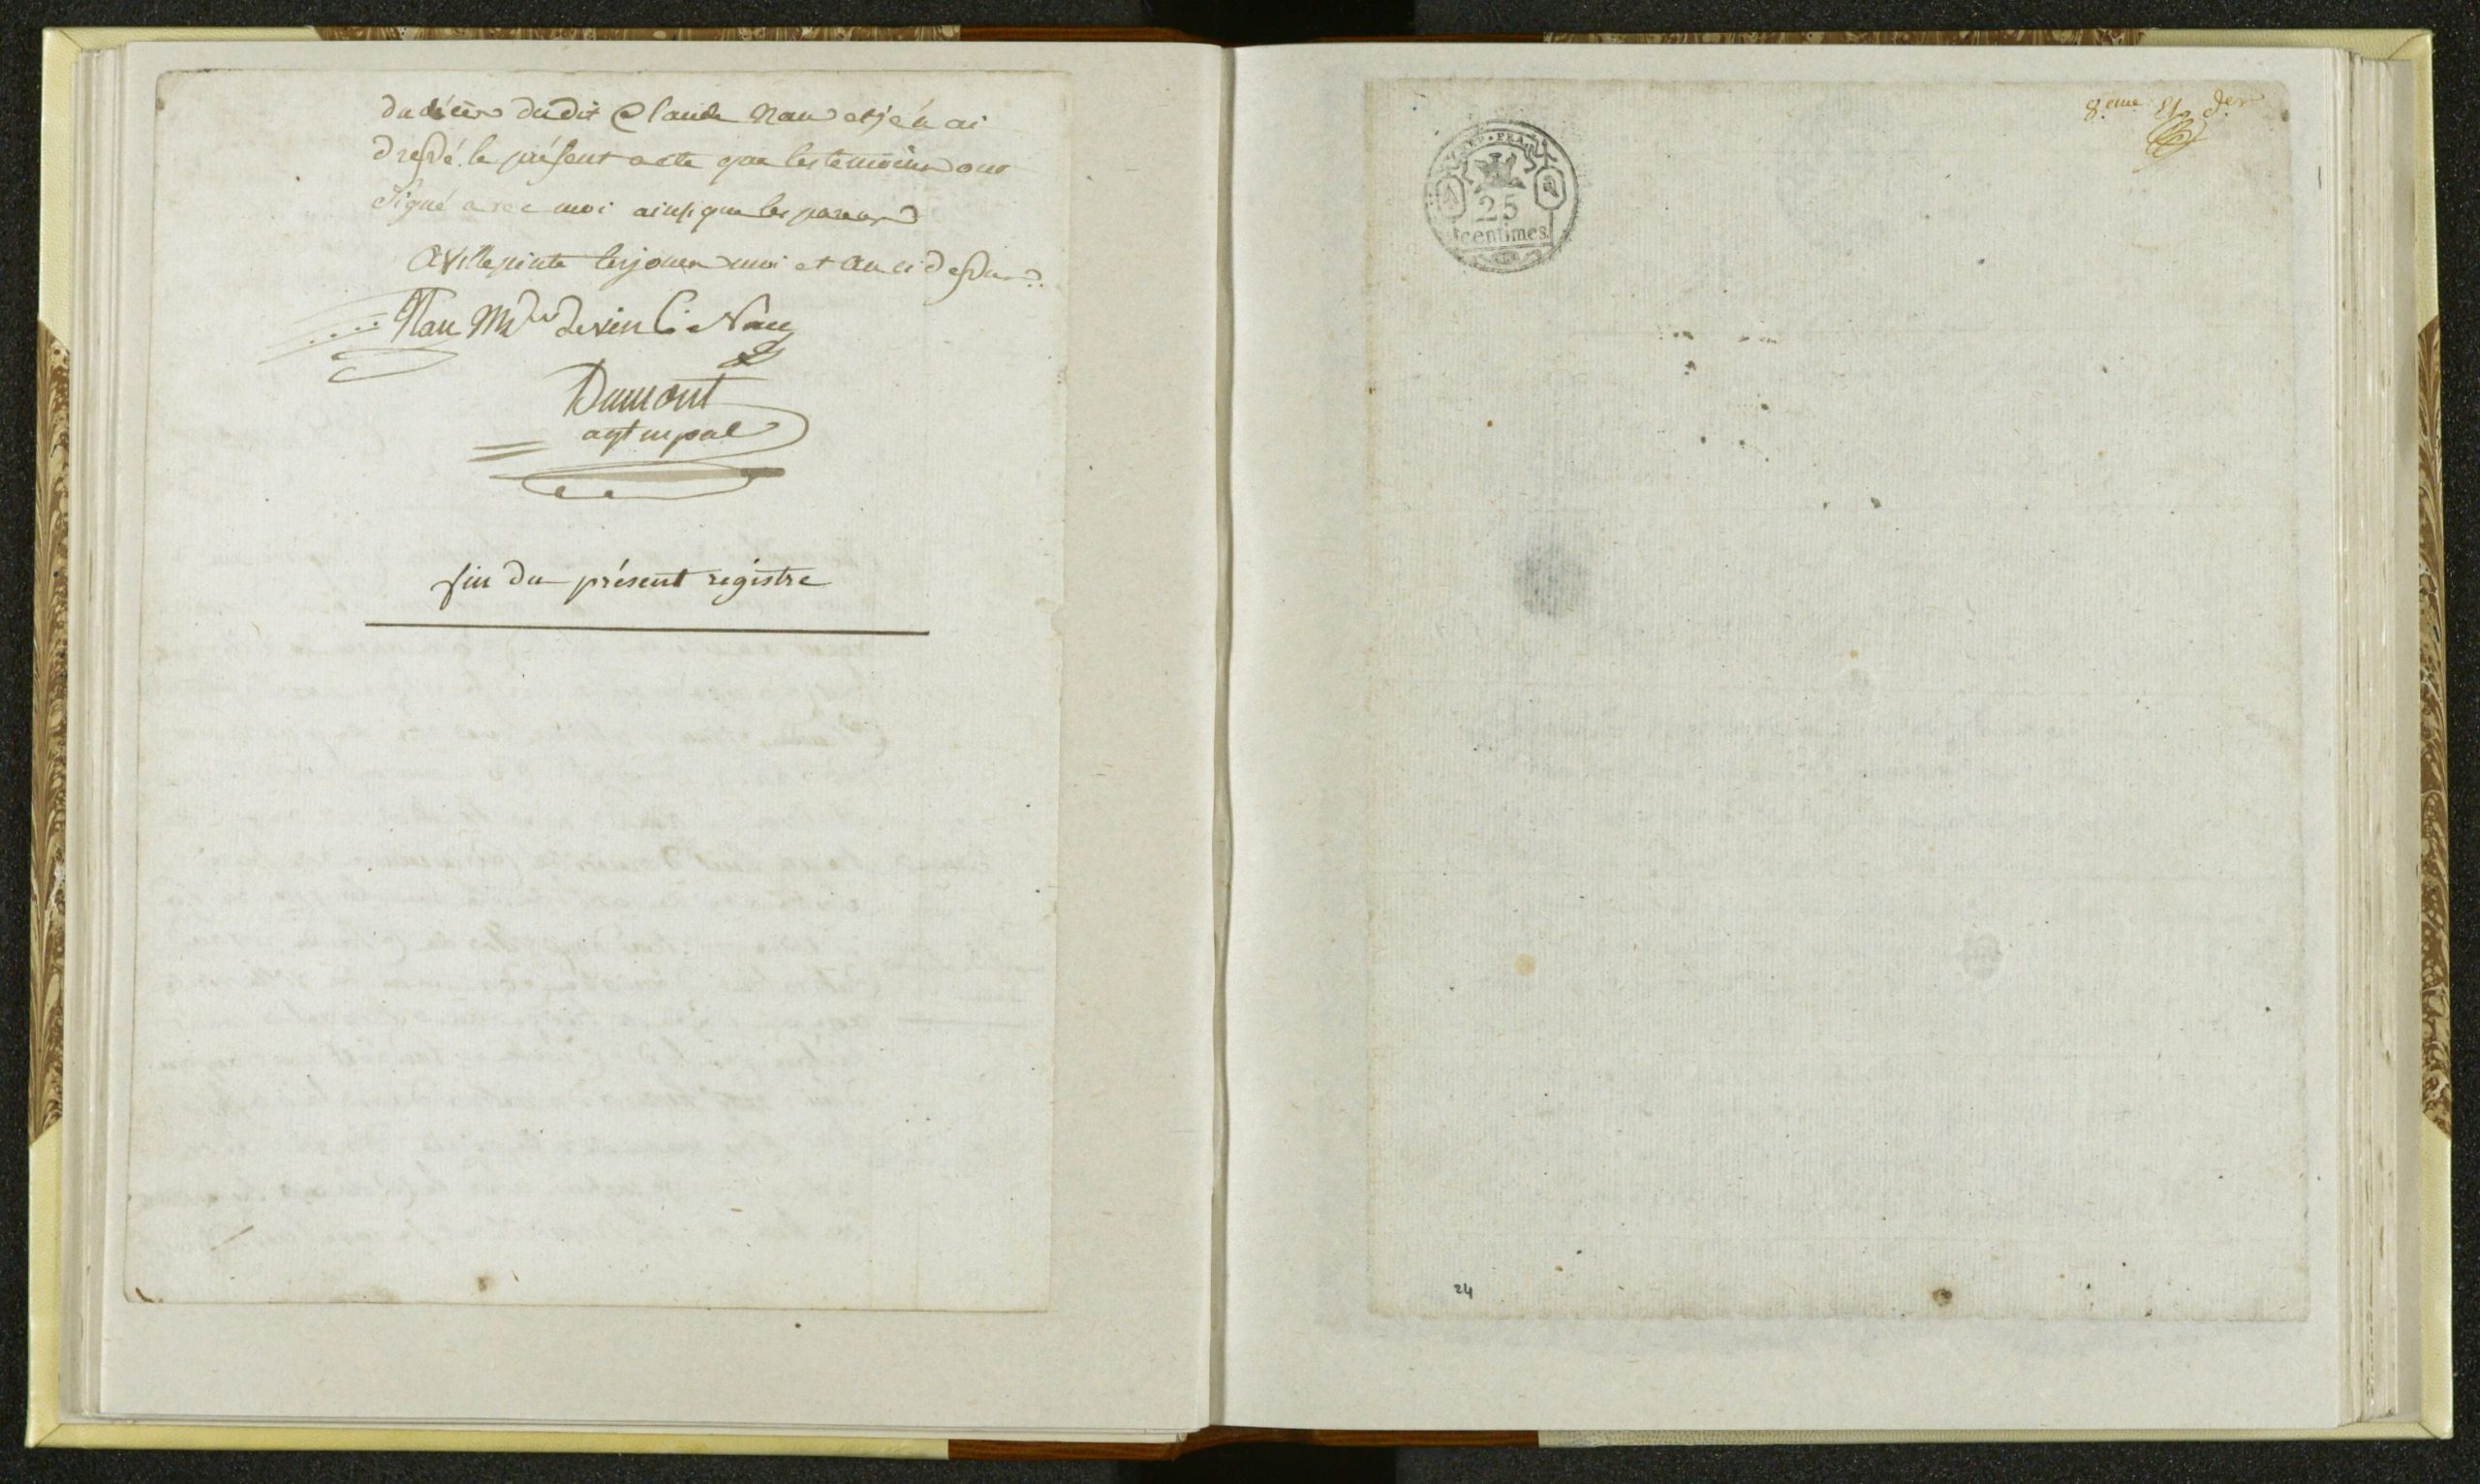 du décès dudit Claude Nau et j'en ai
dressé le présent acte que les temoins ont
signé avec moi ainsi que les parans
A Villepinte les jour moi et an ci dessus
Nau Md de vin C. Nau
Dumont
agt mpal
fin du présent régistre
8eme et der
REP. FRA
25
centimes
24